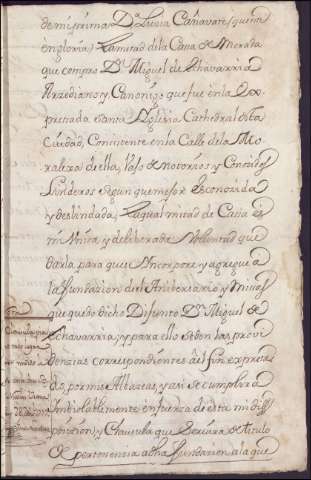 de mi prima D.ª Lucia Cañavate (que en
en gloria) la mitad de la Casa de Morada
que compro D.n Miguel de Echavarria
Arzediano, y Canonigo que fue en la ex
presada Santa Yglesia Cathedral de esta
Ciudad, Consistente en la Calle de la Mo
ralera de ella, vaso de notorios, y Conocidos
Linderos segun que mejor es conozida
y deslindada, la qual mitad de Casa es
mi Unica y deliberada Voluntad que
darla, para que se Yncorpore, y agregue a
la fundacion del Aniversario, y Misas
que quedo dicho Difunto D.n Miguel de
Echavarria, y para ello se den las provi
dencias correspondientes del fin expresa
do, por mis Albazeas, y asi se cumplirá
imbiolablemente en fuerza de esta mi diss
posicion, y Clausula que servirá de titulo
de pertenencia a dha fundacion a la que